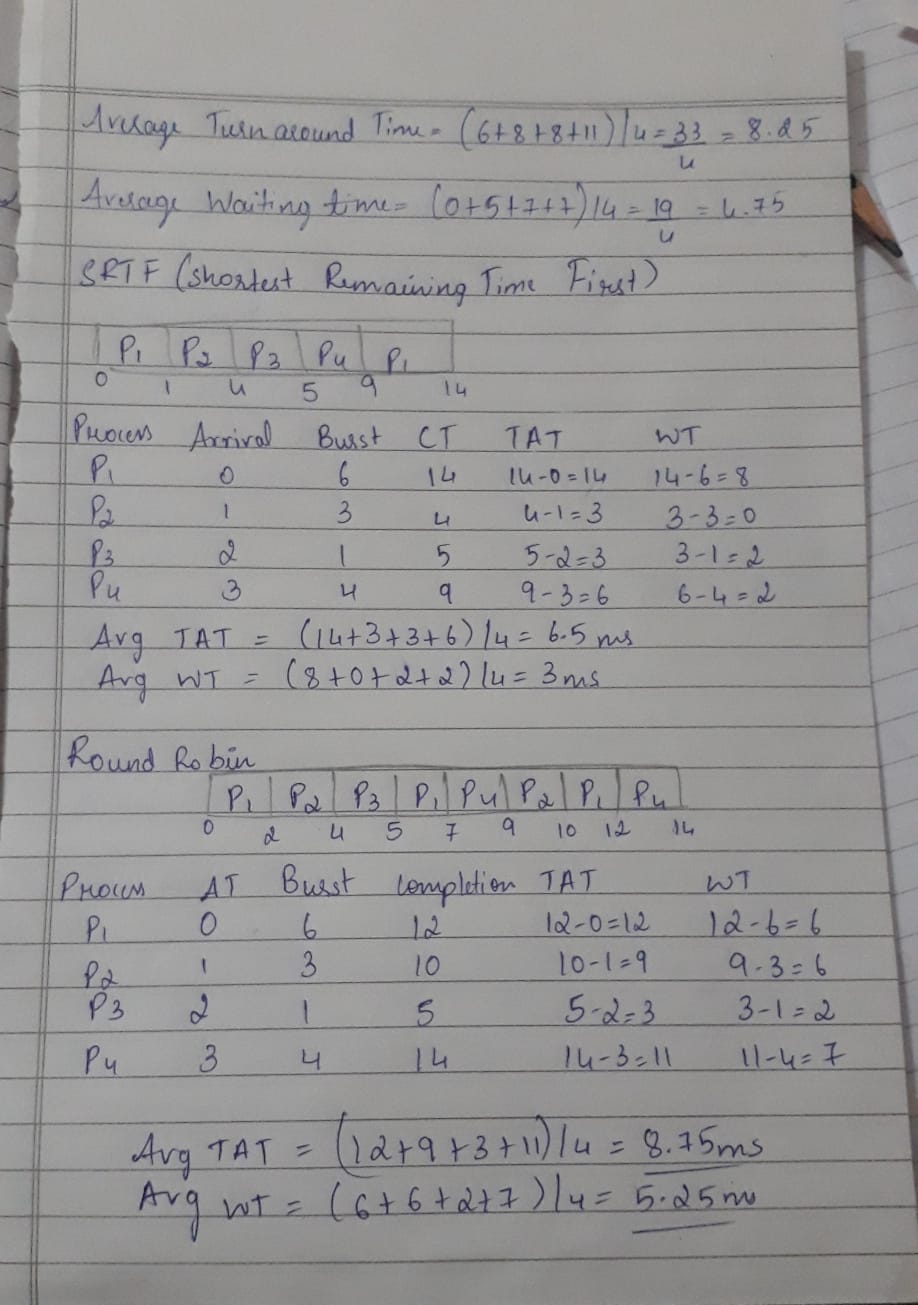 Average Turn around Time = (6+8+8+11)/4 = 33/4 = 8.25
Average Waiting time = (0+5+7+7)/4 = 19/4 = 4.75
SRTF (Shortest Remaining Time First)
P1 P2 P3 P4 P1
0 1 4 5 9 14
Process Arrival Burst CT TAT WT
P1 0 6 14 14-0=14 14-6=8
P2 1 3 4 4-1=3 3-3=0
P3 2 1 5 5-2=3 3-1=2
P4 3 4 9 9-3=6 6-4=2
Avg TAT = (14+3+3+6)/4 = 6.5 ms
Avg WT = (8+0+2+2)/4 = 3ms
Round Robin
P1 P2 P3 P1 P4 P2 P1 P4
0 2 4 5 7 9 10 12 14
Process AT Burst Completion TAT WT
P1 0 6 12 12-0=12 12-6=6
P2 1 3 10 10-1=9 9-3=6
P3 2 1 5 5-2=3 3-1=2
P4 3 4 14 14-3=11 11-4=7
Avg TAT = (12+9+3+11)/4 = 8.75ms
Avg WT = (6+6+2+7)/4 = 5.25ms